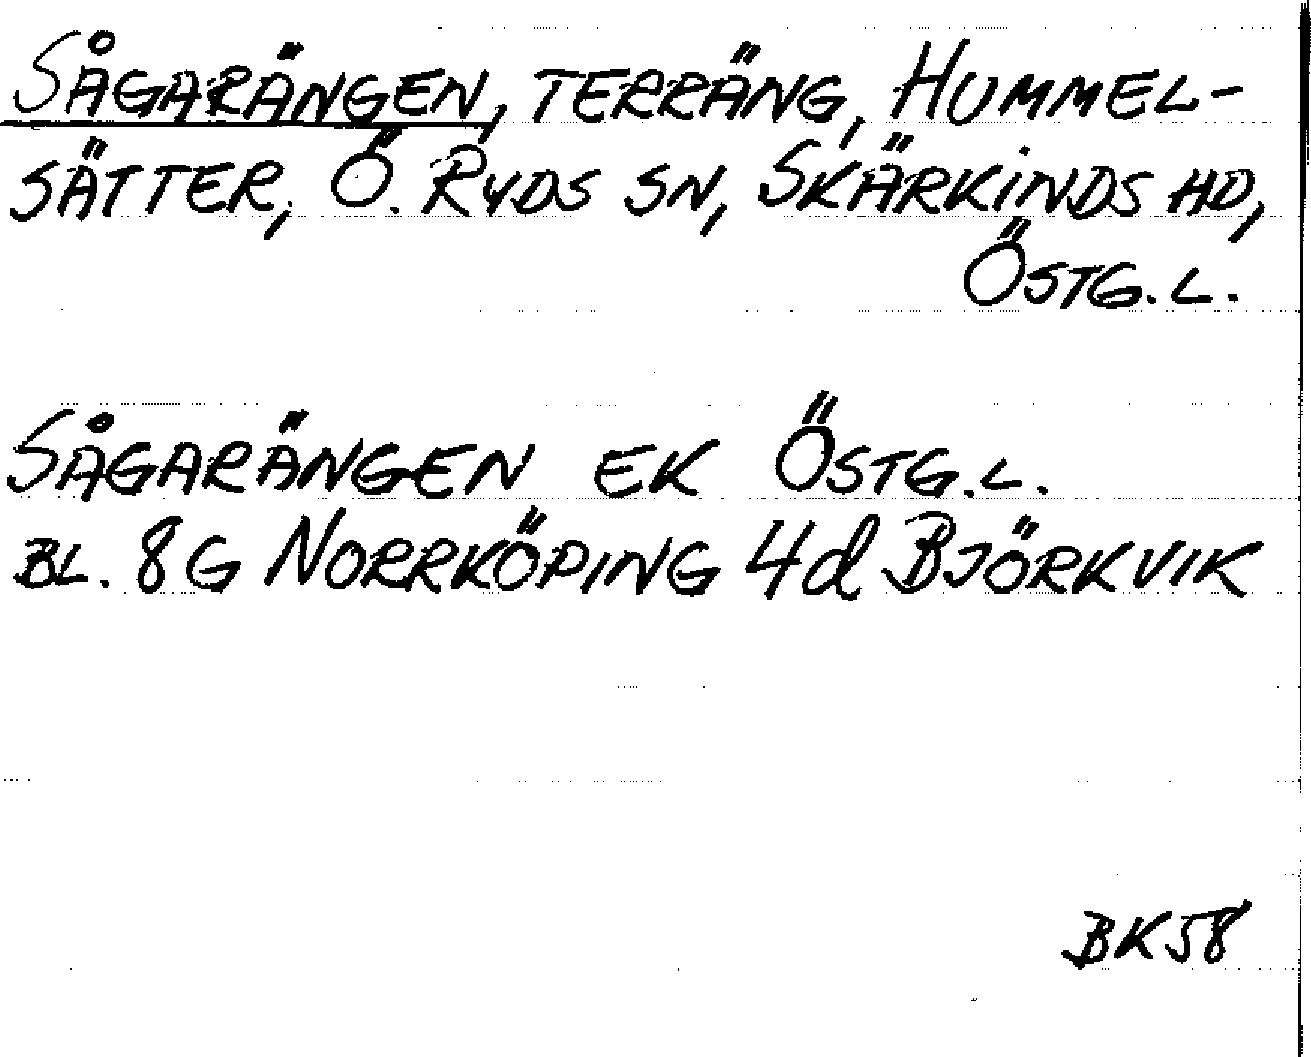 SÅGARÄNGEN, TERRÄNG, HUMMEL-
SÄTTER, Ö. RYDS SN, SKÄRKINDS HD,
ÖSTG. L.
SÅGARÄNGEN EK ÖSTG. L.
BL. 8G NORRKÖPING 4d BJÖRKVIK
BK58